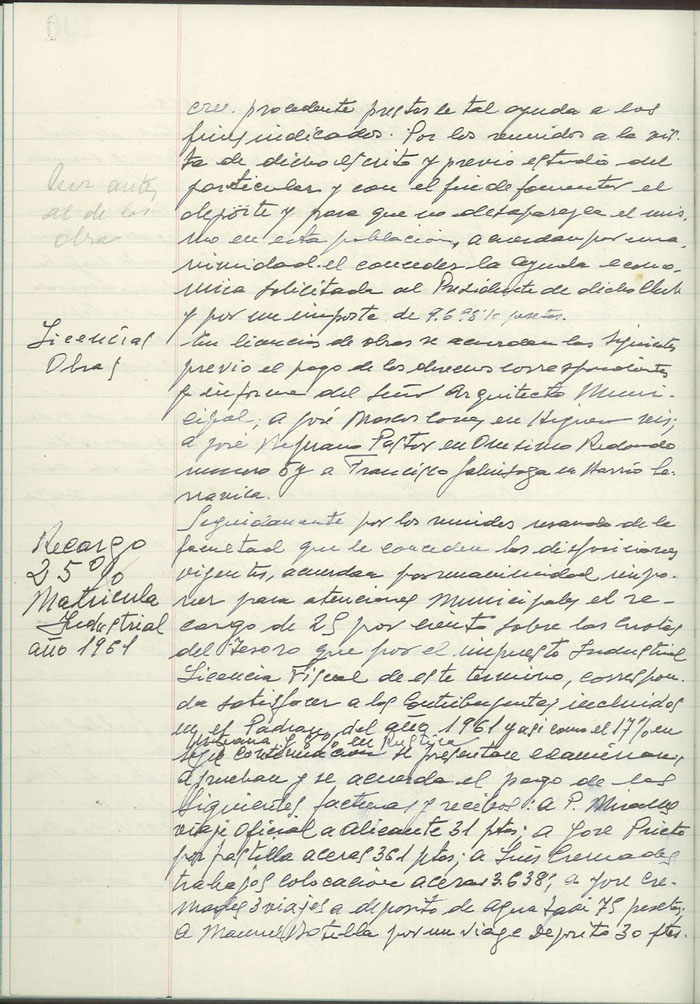 cree procedente prestarle tal ayuda a los
fines indicados. Por los reunidos a la vis-
ta de dicho escrito y previo estudio del
particular y con el fin de fomentar el
deporte y para que no desaparezca el mis-
mo en esta poblacion, acuerdan por una-
nimidad el conceder la ayuda econo-
mica solicitada al Presidente de dicho Club
y por un importe de pesetas.
Licencias
Obras
En licencias de obras se acuerdan las siguientes
previo el pago de los derechos correspondientes
e informe del Señor Arquitecto Muni-
cipal; a José en
a José Pastor en Onesimo Redondo
numero y a Francisco en Barrio Se-
rranica.
Recargo
25 %
Matricula
Industrial
año 1961
Seguidamente por los reunidos usando de la
facultad que le conceden las disposiciones
vigentes, acuerdan por unanimidad impo-
ner para atenciones Municipales el re-
cargo de 25 por ciento sobre las Cuotas
del Tesoro que por el impuesto Industrial
Licencia Fiscal de este termino, correspon-
da satisfacer a los Contribuyentes incluidos
en el Padron del año 1961 y asi como el 17% en
urbana y en Rustica
continuacion se presentan examinan,
aprueban y se acuerda el pago de las
siguientes facturas y recibos: a P. Miralles
viaje Oficial a Alicante 31 ptas; a Jose Prieto
por pastilla aceras 361 ptas; a Luis Cremades
trabajos colocacion aceras 3.638; a Jose Cre-
mades 3 viajes a deposito de agua 75 pesetas;
a Manuel Botella por un viage Deposito 30 ptas.